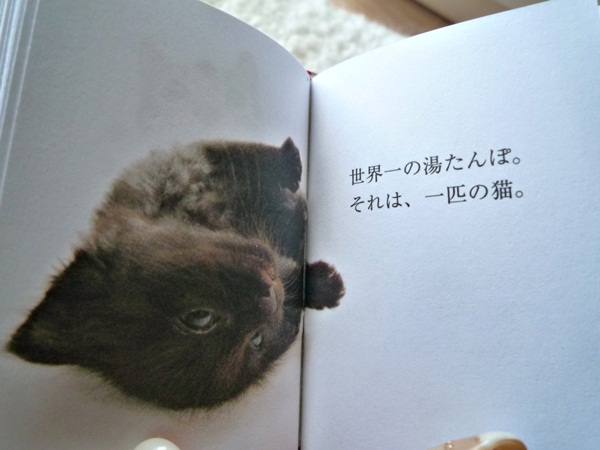 世界一の湯たんぽ。
それは、一匹の猫。